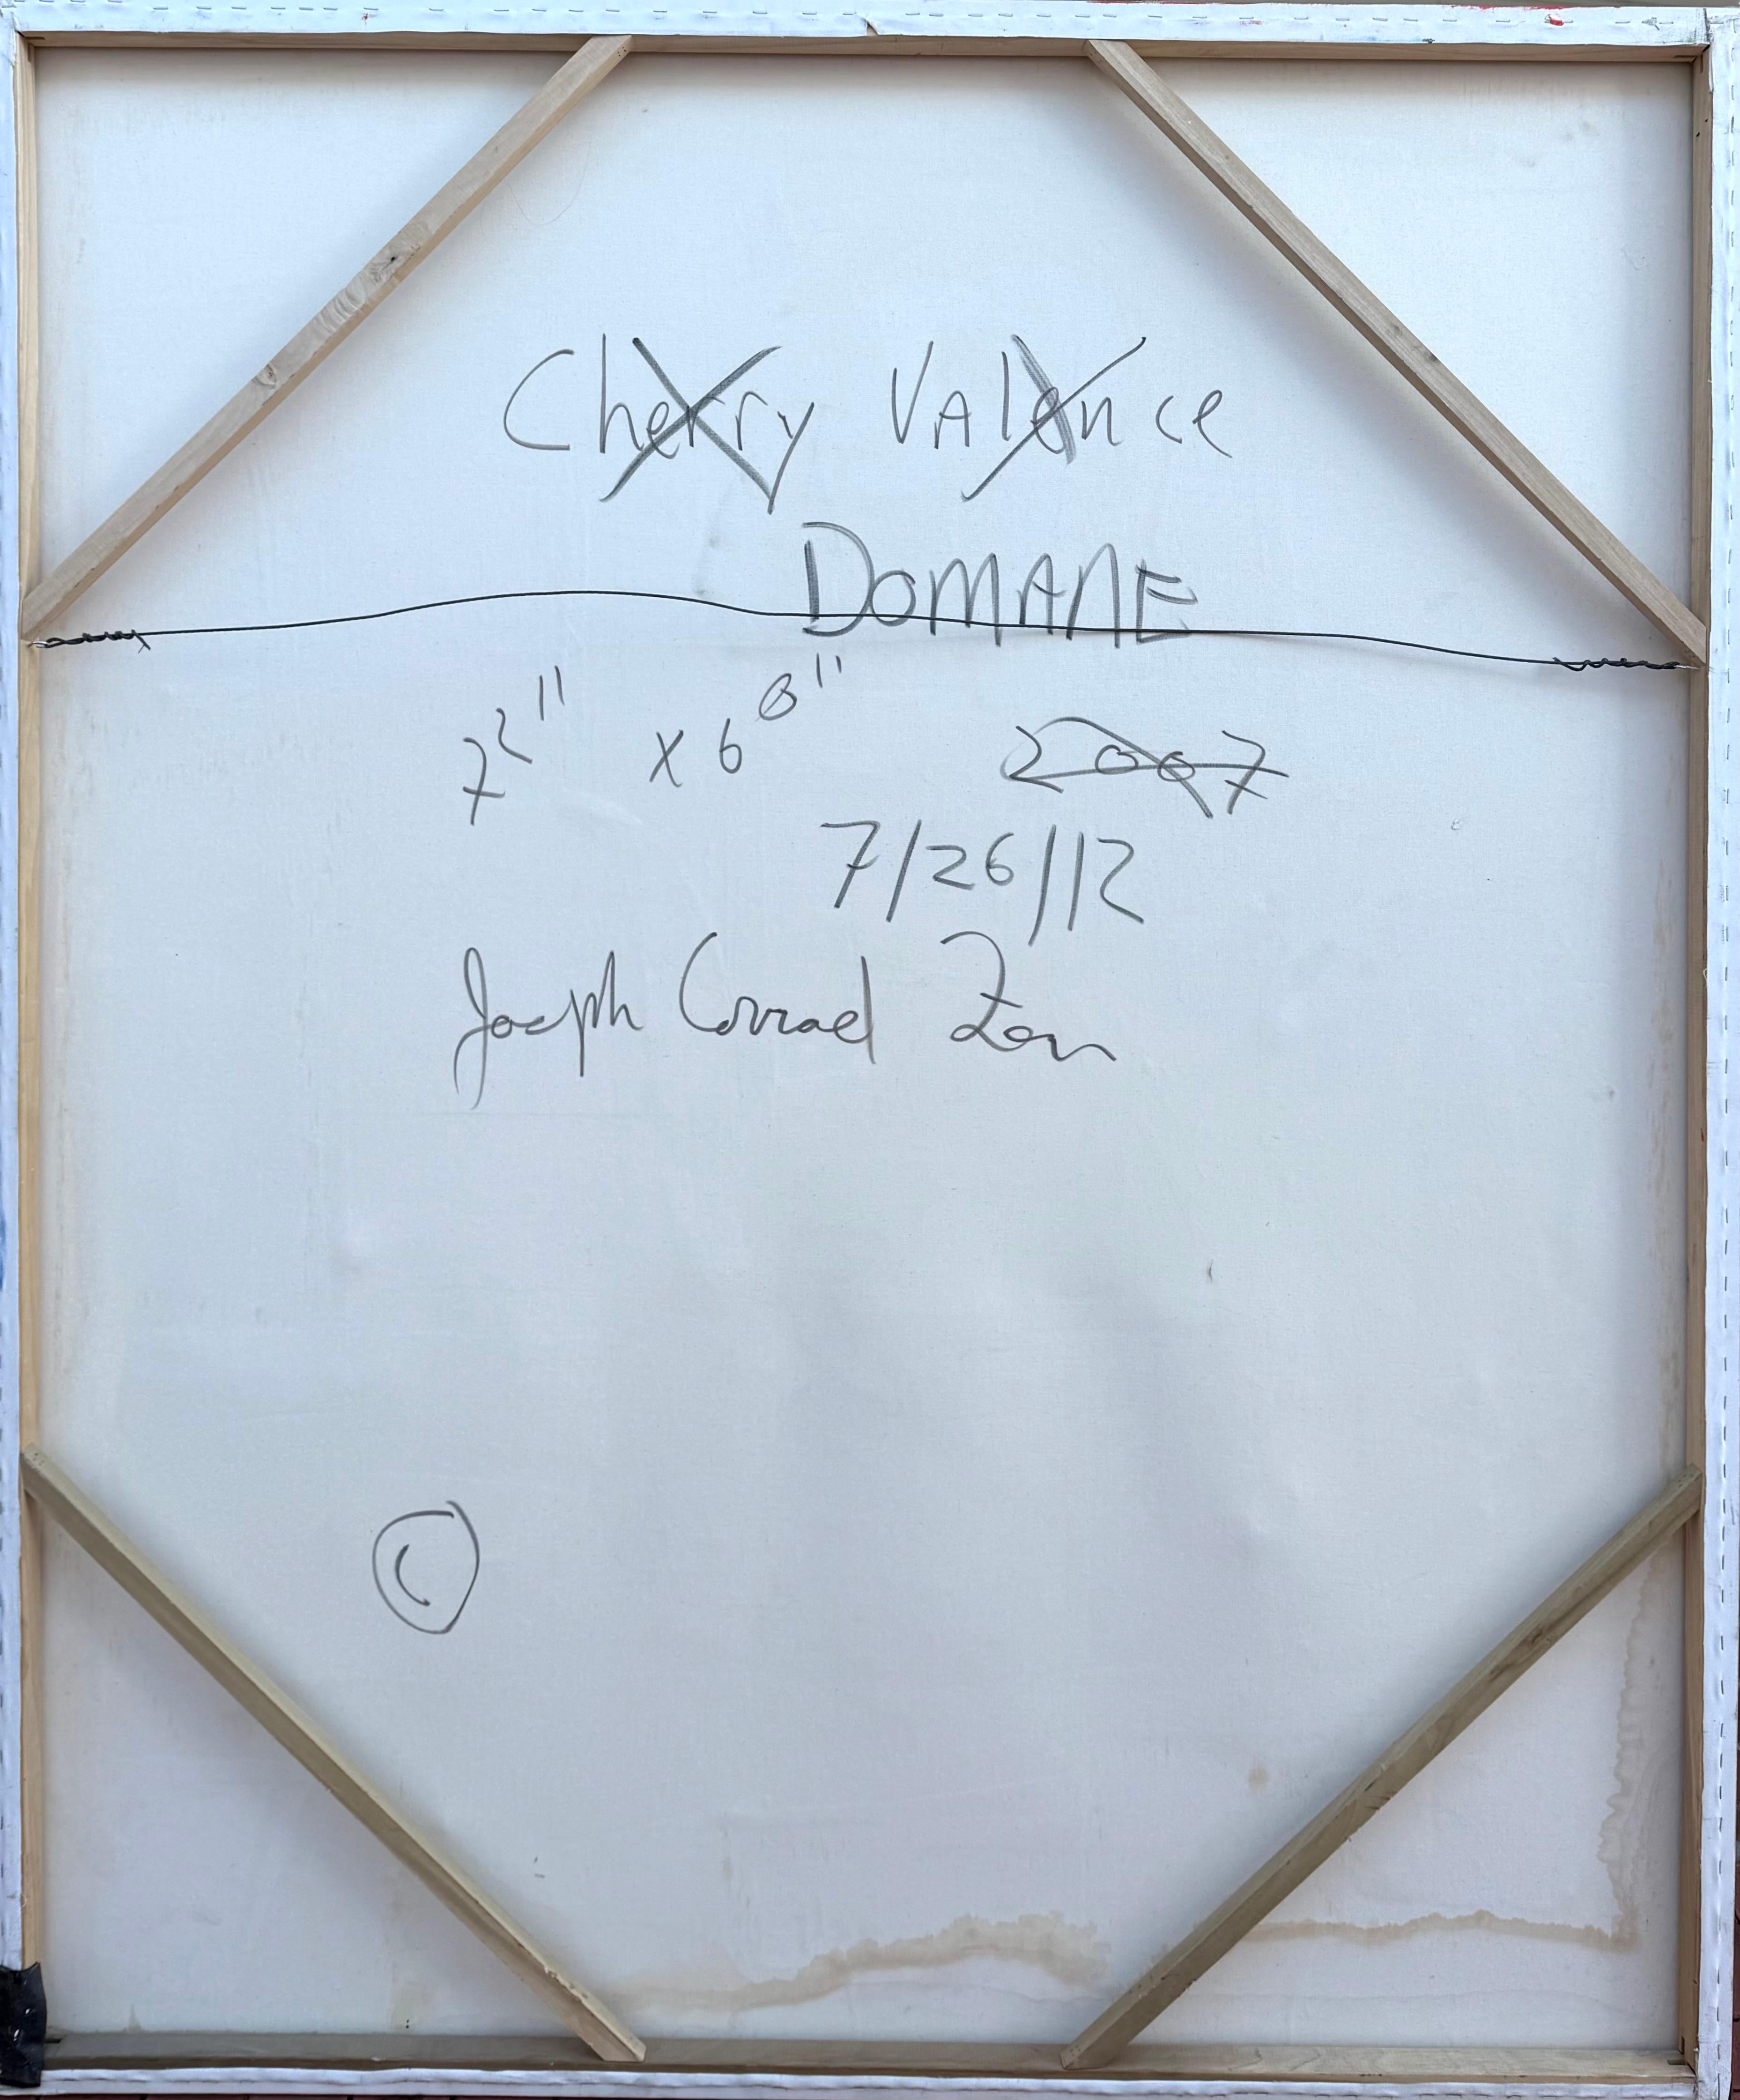 Cherry Valence
DOMANE
72" x 60"
2007
7/26/12
Joseph Conrad Zen
©